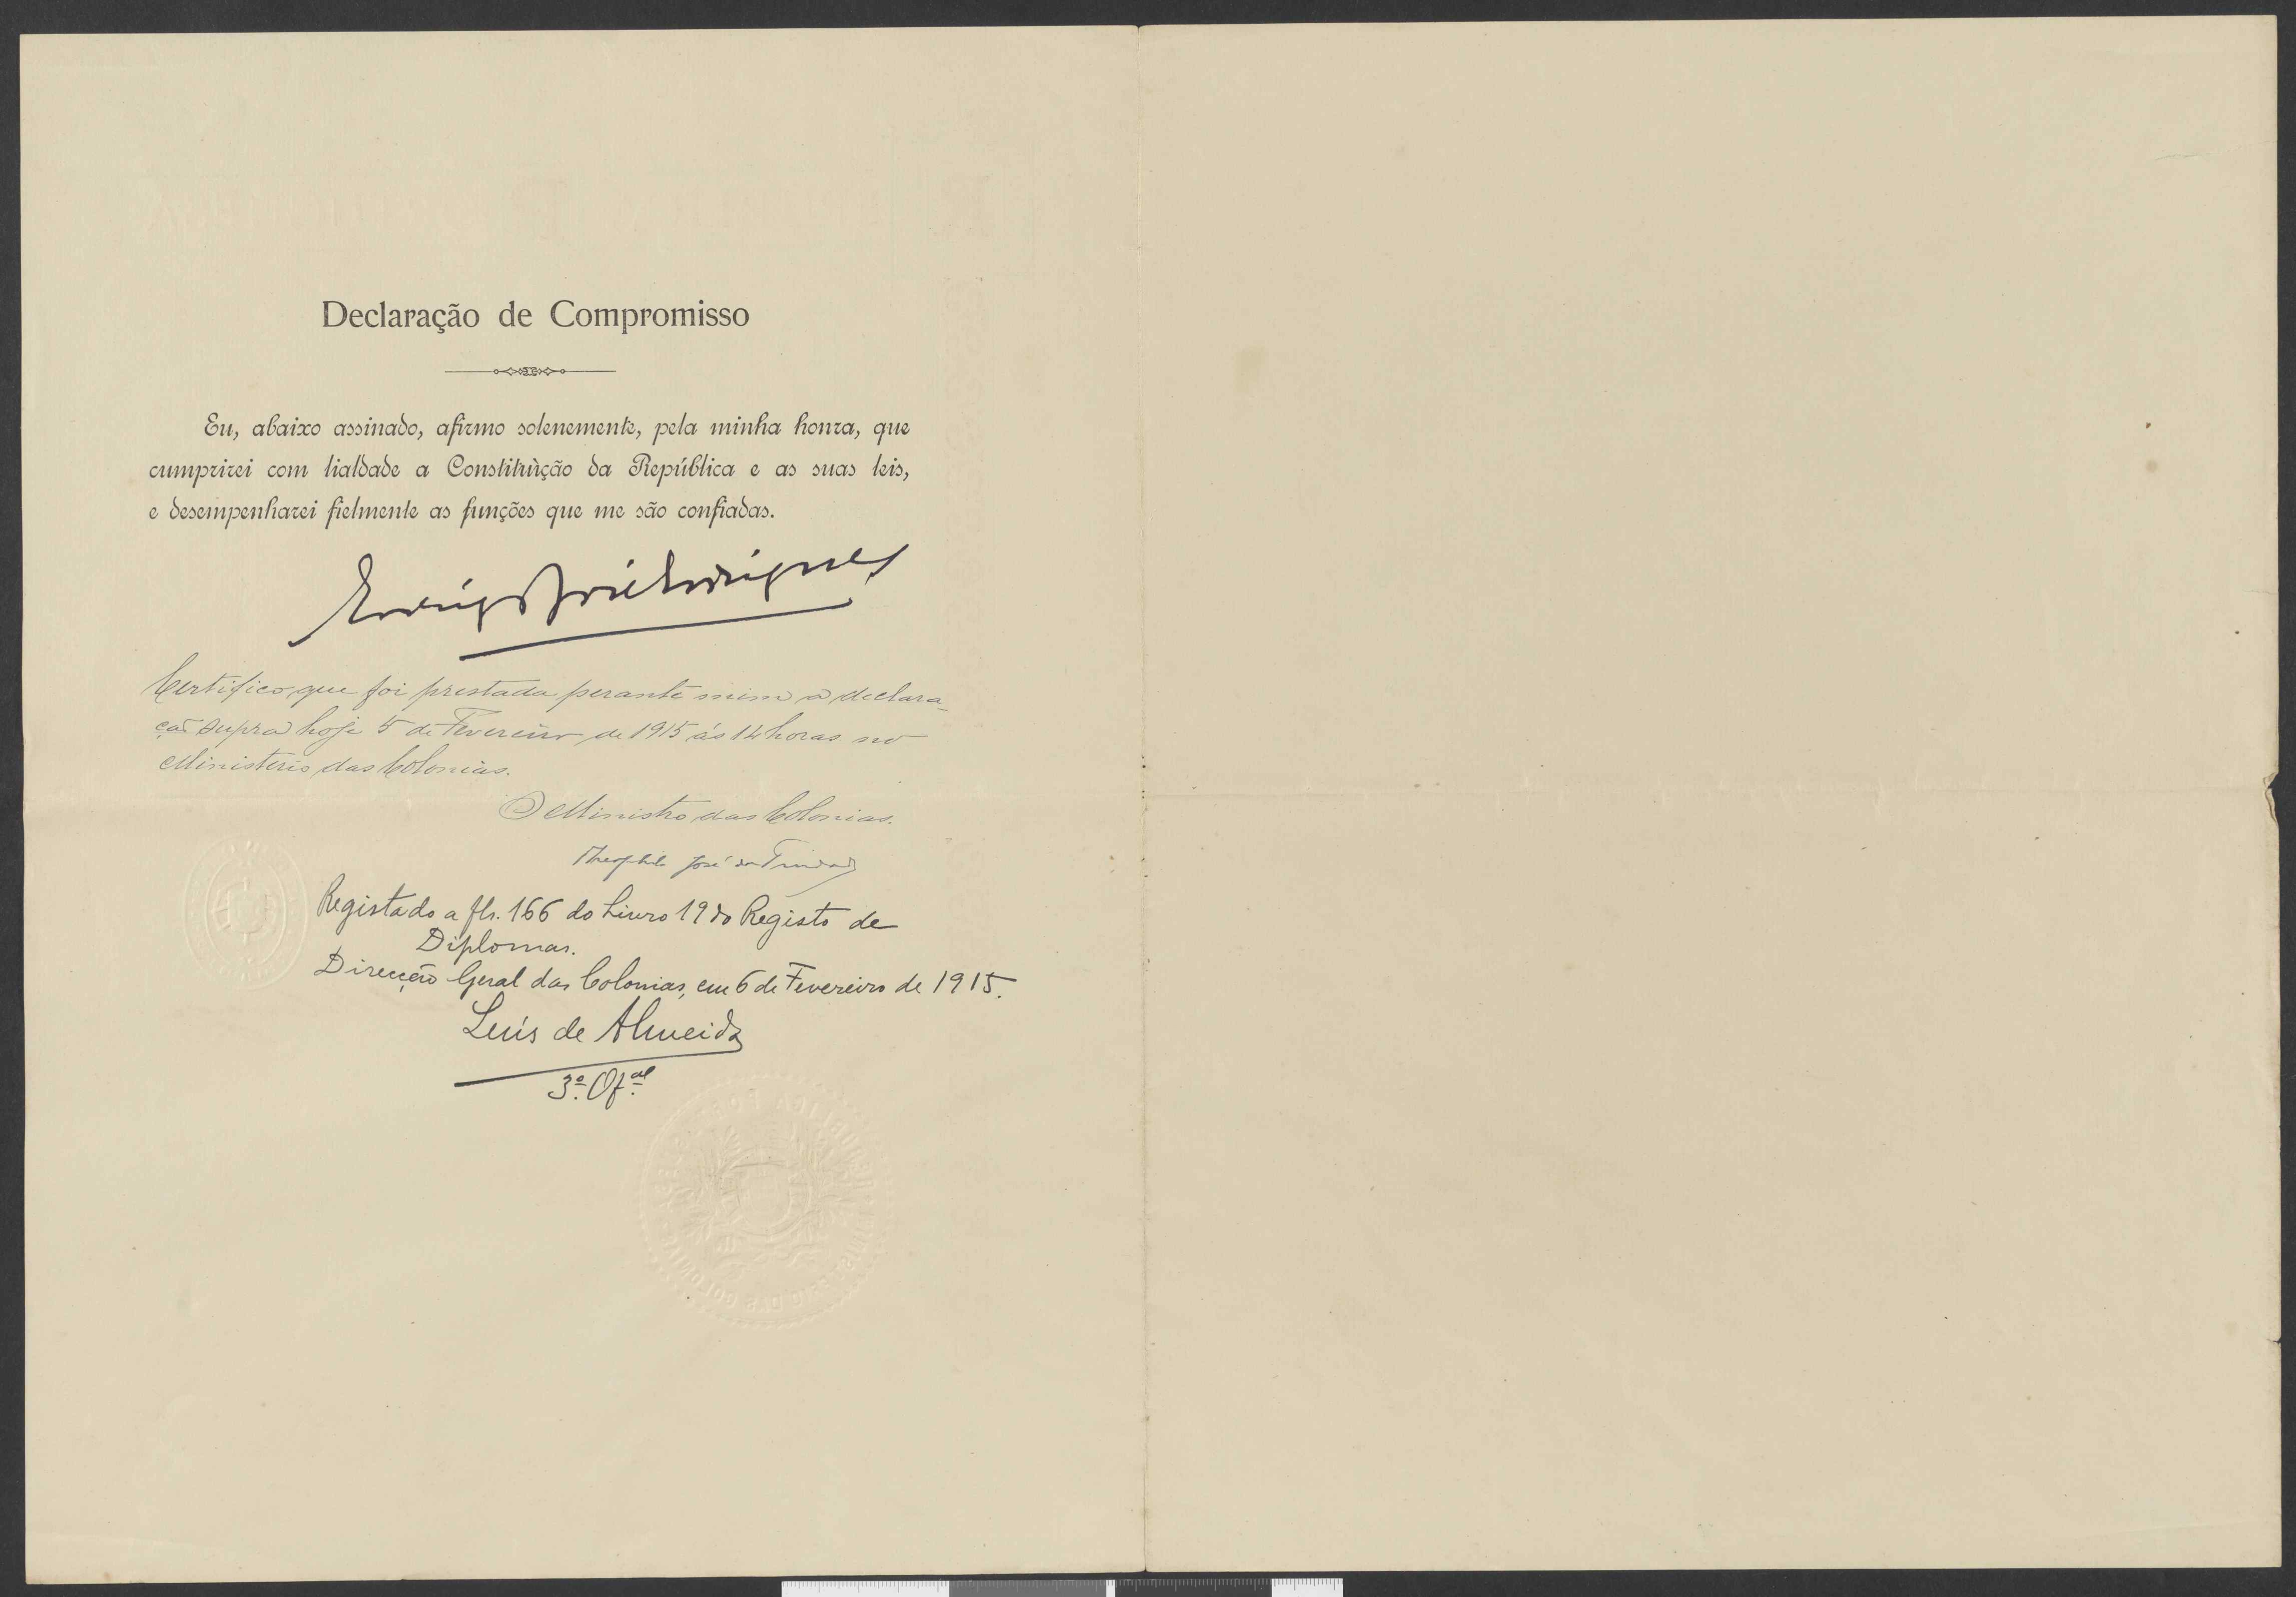 Declaração de Compromisso
Eu, abaixo assinado, afirmo solenemente, pela minha honra, que
cumprirei com lialdade a Constituìção da República e as suas leis,
e desempenharei fielmente as funções que me são confiadas.
Rodrigo José Rodrigues
Certifico que foi prestada perante mim a declara-
ção supra hoje 5 de Fevereiro de 1915 ás 14 horas no
Ministerio das Colonias.
O Ministro das Colonias.
Theophilo José da Trindade
Registado a fls. 166 do Livro 19 do Registo de
Diplomas.
Direcção Geral das Colonias, em 6 de Fevereiro de 1915.
Luís de Almeida
3.º Of.al
REPUBLICA PORTUGUESA
MINISTERIO DAS COLONIAS